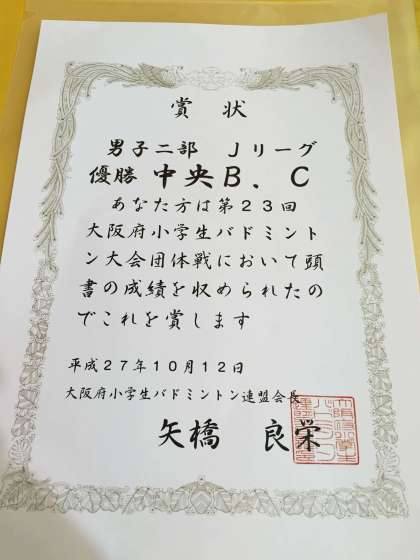 賞状
男子二部 Jリーグ
優勝 中央B．C
あなた方は第23回
大阪府小学生バドミント
ン大会団体戦において頭
書の成績を収められたの
でこれを賞します
平成27年10月12日
大阪府小学生バドミントン連盟会長
矢橋 良栄